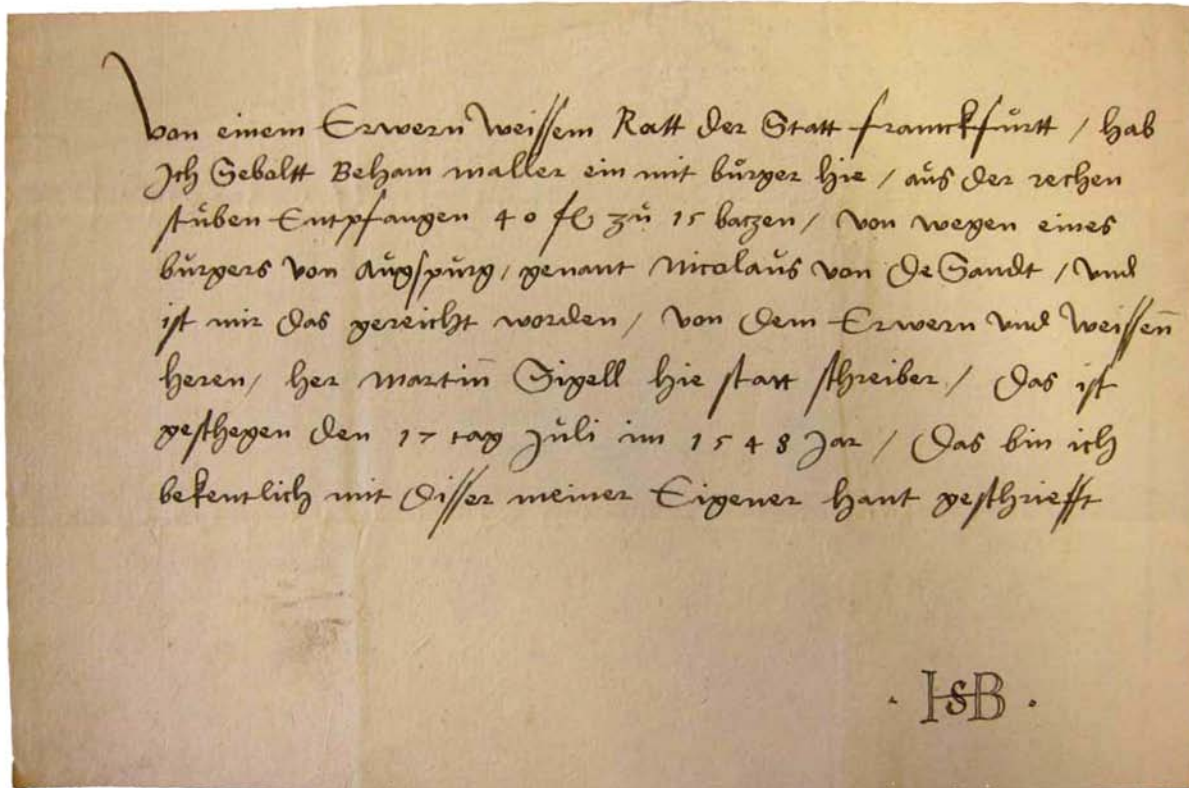 Von einem Erwern Weissem Ratt der Statt franckfürtt / hab
Ich Seboltt Beham maller ein mit bürger hie / aüs der rechen
stüben Entpfangen 40 fl zü 15 baczen / von wegen eines
bürgers von Aügspürg / genant Nicolaüs von De Sandt / vnd
ist mir das gereicht worden / von dem Erwern vnd Weissen̄
heren / her Martin̄ Sigell hie statt schreiber / Das ist
geschegen den 17 tag Jüli im 1548 Jar / Das bin ich
bekentlich mit disser meiner Eigener hant geschriefft
· HSB ·